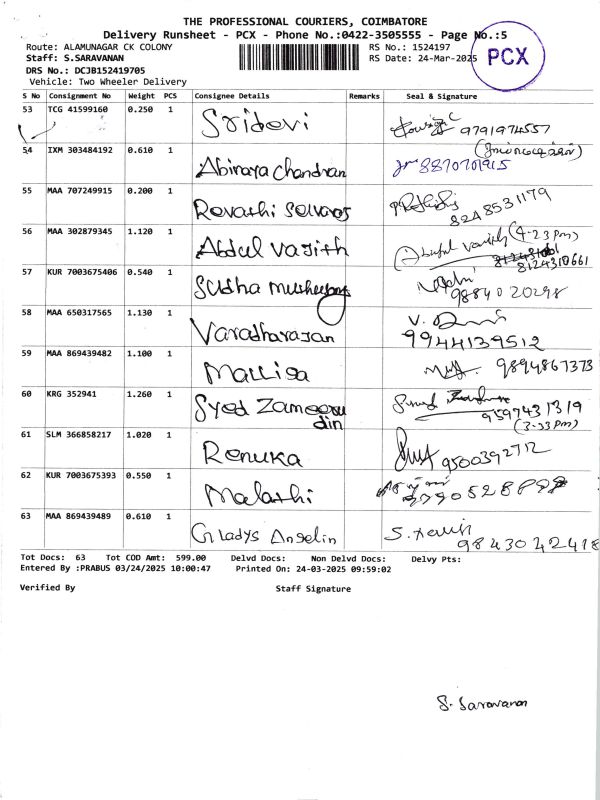 THE PROFESSIONAL COURIERS, COIMBATORE
Delivery Runsheet - PCX - Phone No.:0422-3505555 - Page No.:5
Route: ALAMUNAGAR CK COLONY
RS No.: 1524197
Staff: S.SARAVANAN
RS Date: 24-Mar-2025
PCX
DRS No.: DCJB152419705
Vehicle: Two Wheeler Delivery
S No Consignment No Weight PCS Consignee Details Remarks Seal & Signature
53 TCG 41599160 0.250 1 Sridevi 9791974557
54 IXM 303484192 0.610 1 Abinaya Chandran 8870701915
55 MAA 707249915 0.200 1 Revathi Selvaraj 8248531179
56 MAA 302879345 1.120 1 Abdul Vajith (4-23 pm)
8124310661
57 KUR 7003675406 0.540 1 Sudha 98840 20298
58 MAA 650317565 1.130 1 Varadharajan V.
9944139512
59 MAA 869439482 1.100 1 Malliga 9894867373
60 KRG 352941 1.260 1 Syed Zameeru
din 9597431319
(3-33 pm)
61 SLM 366858217 1.020 1 Renuka 9500392712
62 KUR 7003675393 0.550 1 Malathi
63 MAA 869439489 0.610 1 Gladys Angelin S.
9843042418
Tot Docs: 63 Tot COD Amt: 599.00 Delvd Docs: Non Delvd Docs: Delvy Pts:
Entered By :PRABUS 03/24/2025 10:00:47 Printed On: 24-03-2025 09:59:02
Verified By Staff Signature
S. Saravanan